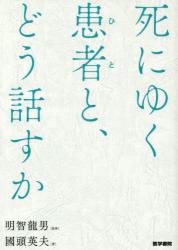 死にゆく
患者と、
ひと
どう話すか
明智龍男 [監修]
國頭英夫 [著]
医学書院